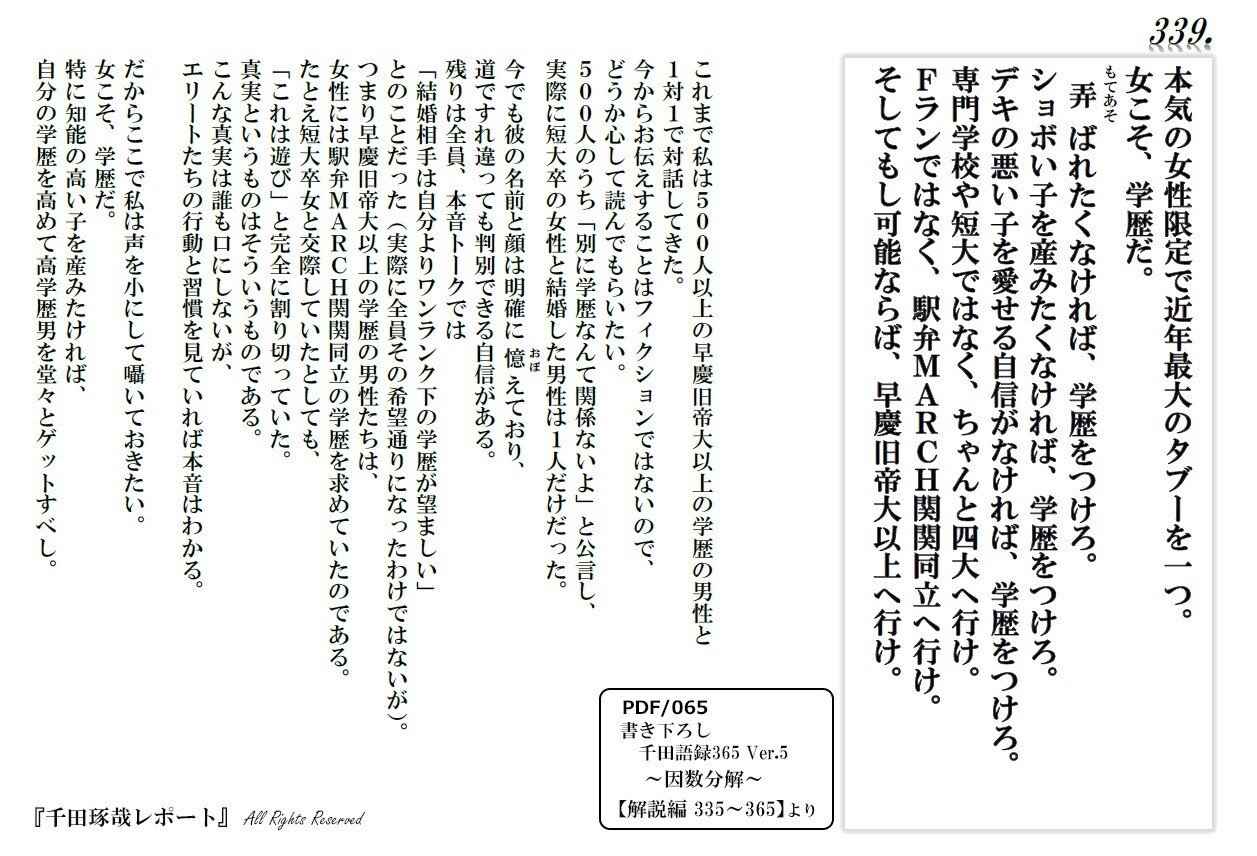 339.
本気の女性限定で近年最大のタブーを一つ。
女こそ、学歴だ。
弄ばれたくなければ、学歴をつけろ。
もてあそ
ショボい子を産みたくなければ、学歴をつけろ。
デキの悪い子を愛せる自信がなければ、学歴をつけろ。
専門学校や短大ではなく、ちゃんと四大へ行け。
Fランではなく、駅弁MARCH関関同立へ行け。
そしてもし可能ならば、早慶旧帝大以上へ行け。
これまで私は500人以上の早慶旧帝大以上の学歴の男性と
1対1で対話してきた。
今からお伝えすることはフィクションではないので、
どうか心して読んでもらいたい。
500人のうち「別に学歴なんて関係ないよ」と公言し、
実際に短大卒の女性と結婚した男性は1人だけだった。
今でも彼の名前と顔は明確に憶えており、
おぼ
道ですれ違っても判別できる自信がある。
残りは全員、本音トークでは
「結婚相手は自分よりワンランク下の学歴が望ましい」
とのことだった（実際に全員その希望通りになったわけではないが）。
つまり早慶旧帝大以上の学歴の男性たちは、
女性には駅弁MARCH関関同立の学歴を求めていたのである。
たとえ短大卒女と交際していたとしても、
「これは遊び」と完全に割り切っていた。
真実というものはそういうものである。
こんな真実は誰も口にしないが、
エリートたちの行動と習慣を見ていれば本音はわかる。
だからここで私は声を小にして囁いておきたい。
女こそ、学歴だ。
特に知能の高い子を産みたければ、
自分の学歴を高めて高学歴男を堂々とゲットすべし。
PDF/065
書き下ろし
千田語録365 Ver.5
～因数分解～
【解説編 335～365】より
『千田琢哉レポート』 All Rights Reserved